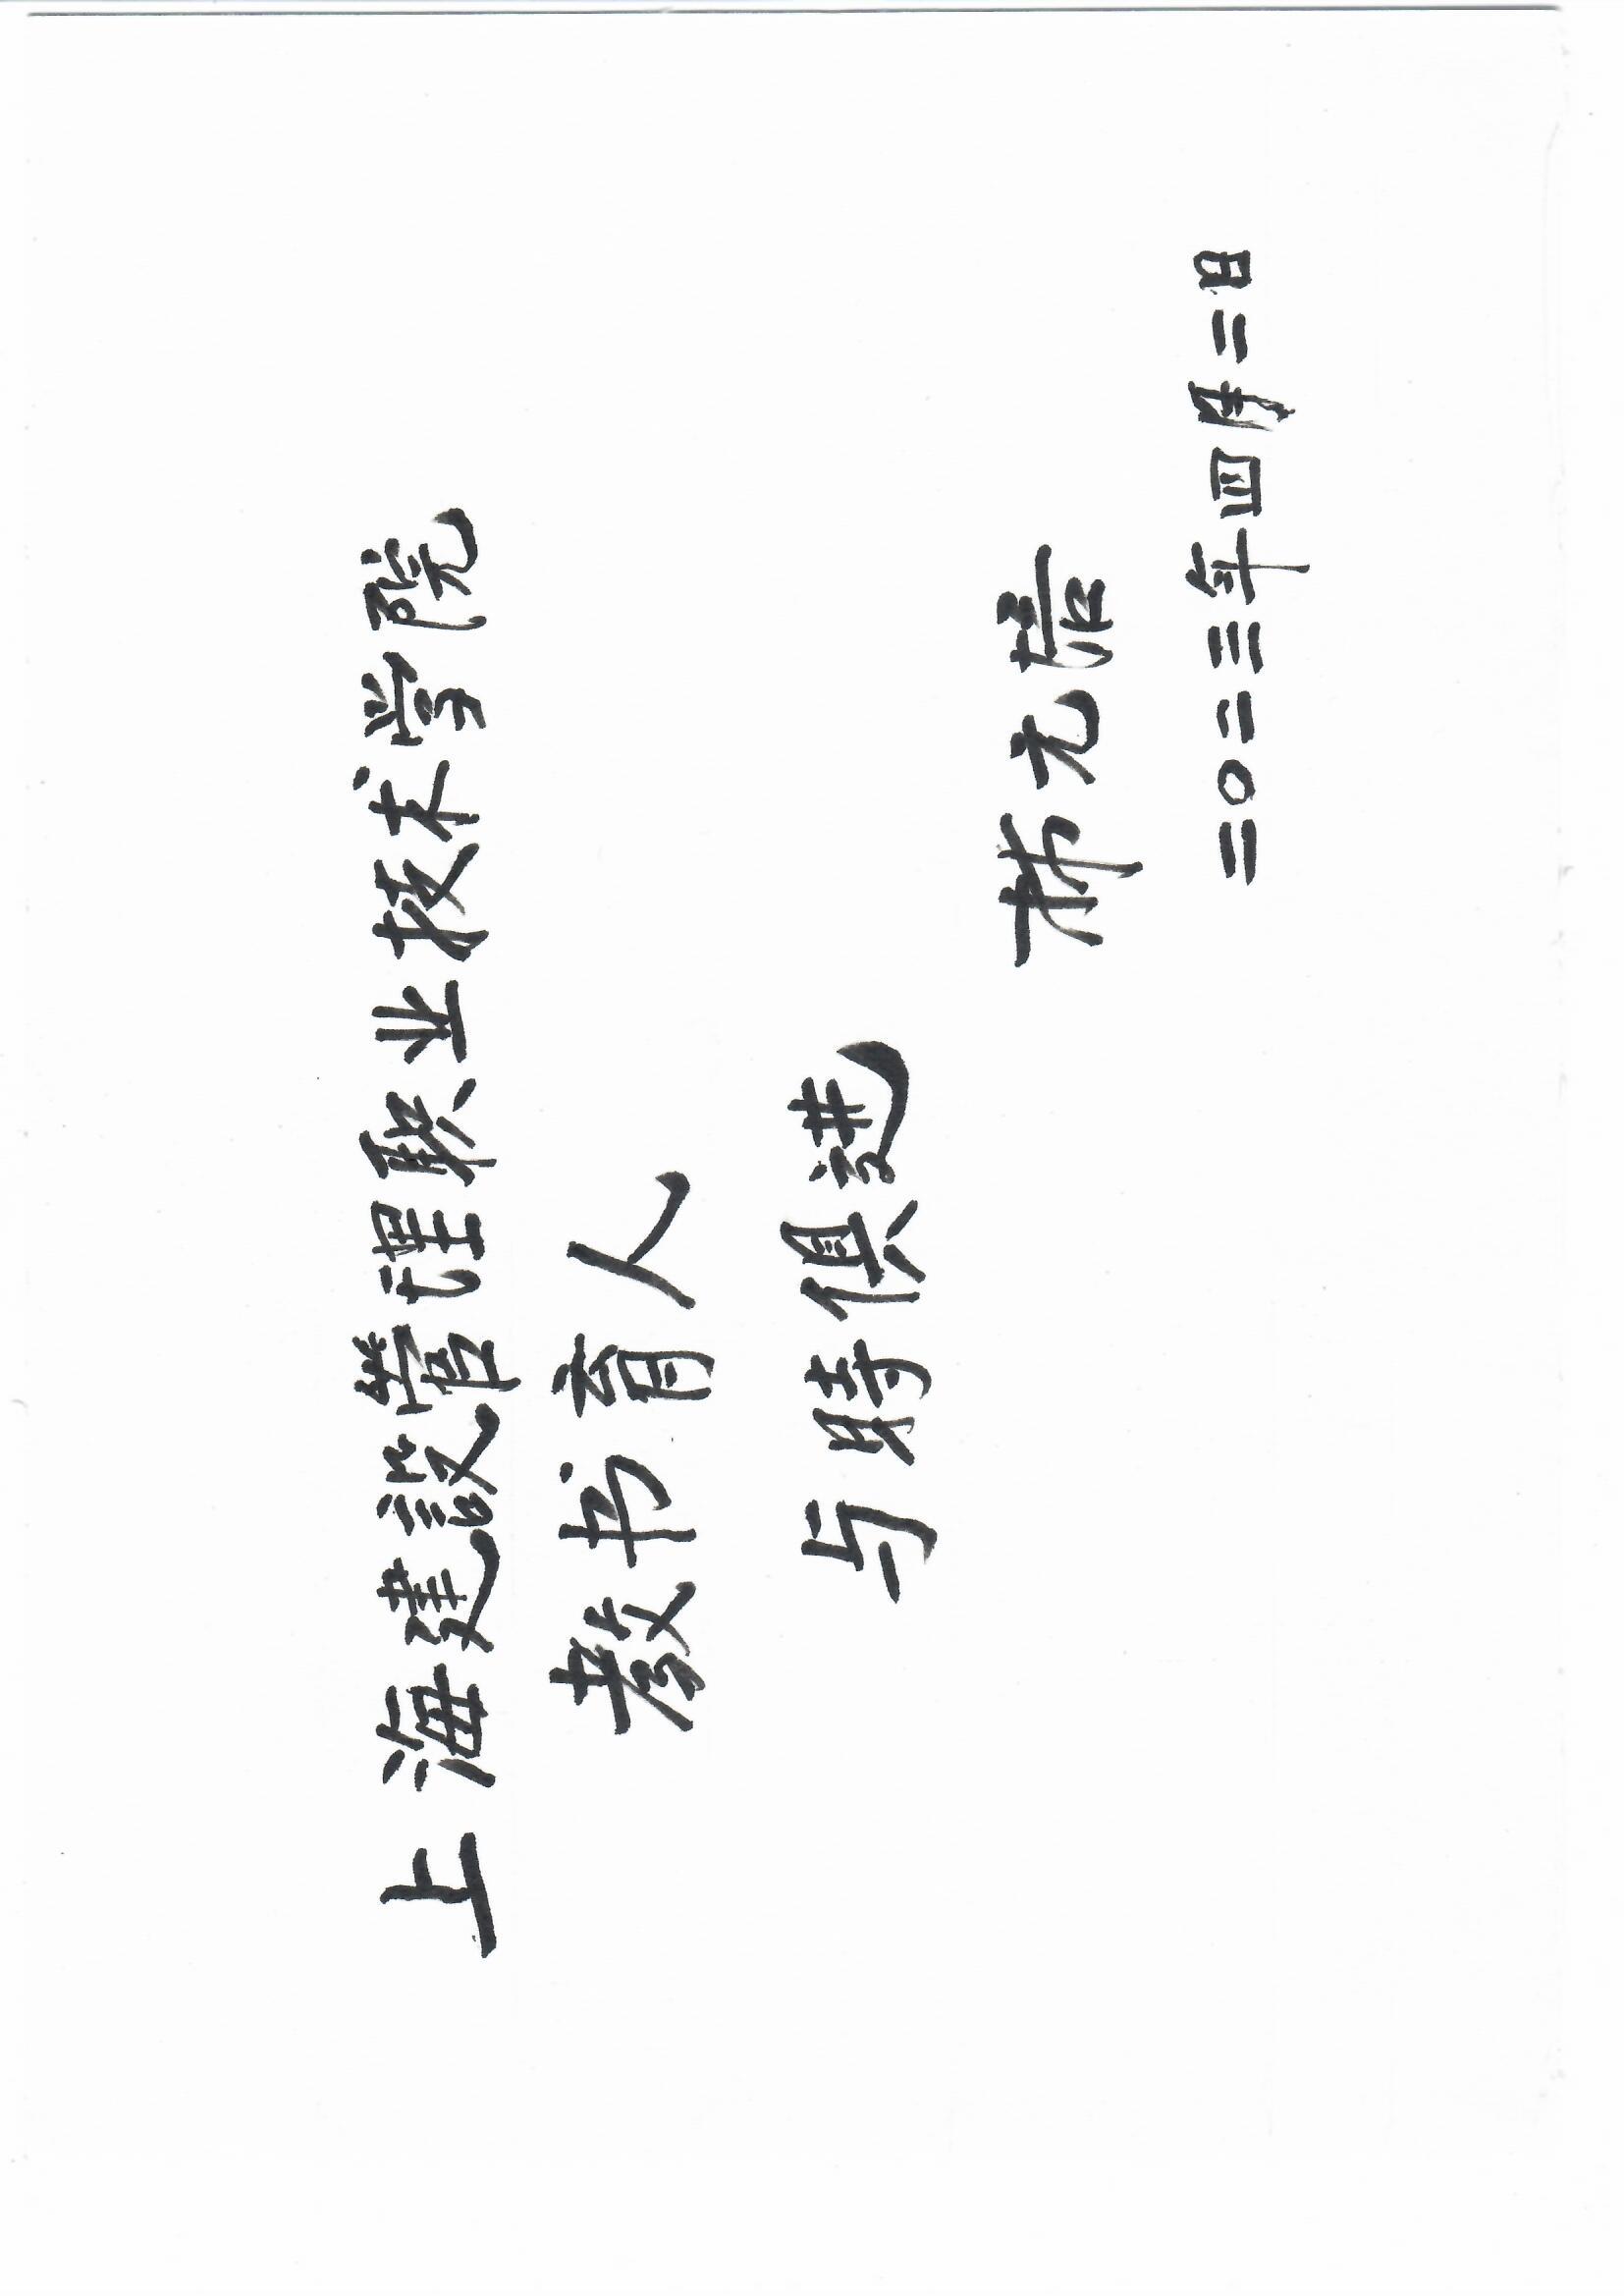 上海建設管理职业技术学院
教书育人
与時俱进
二〇二三年四月二日